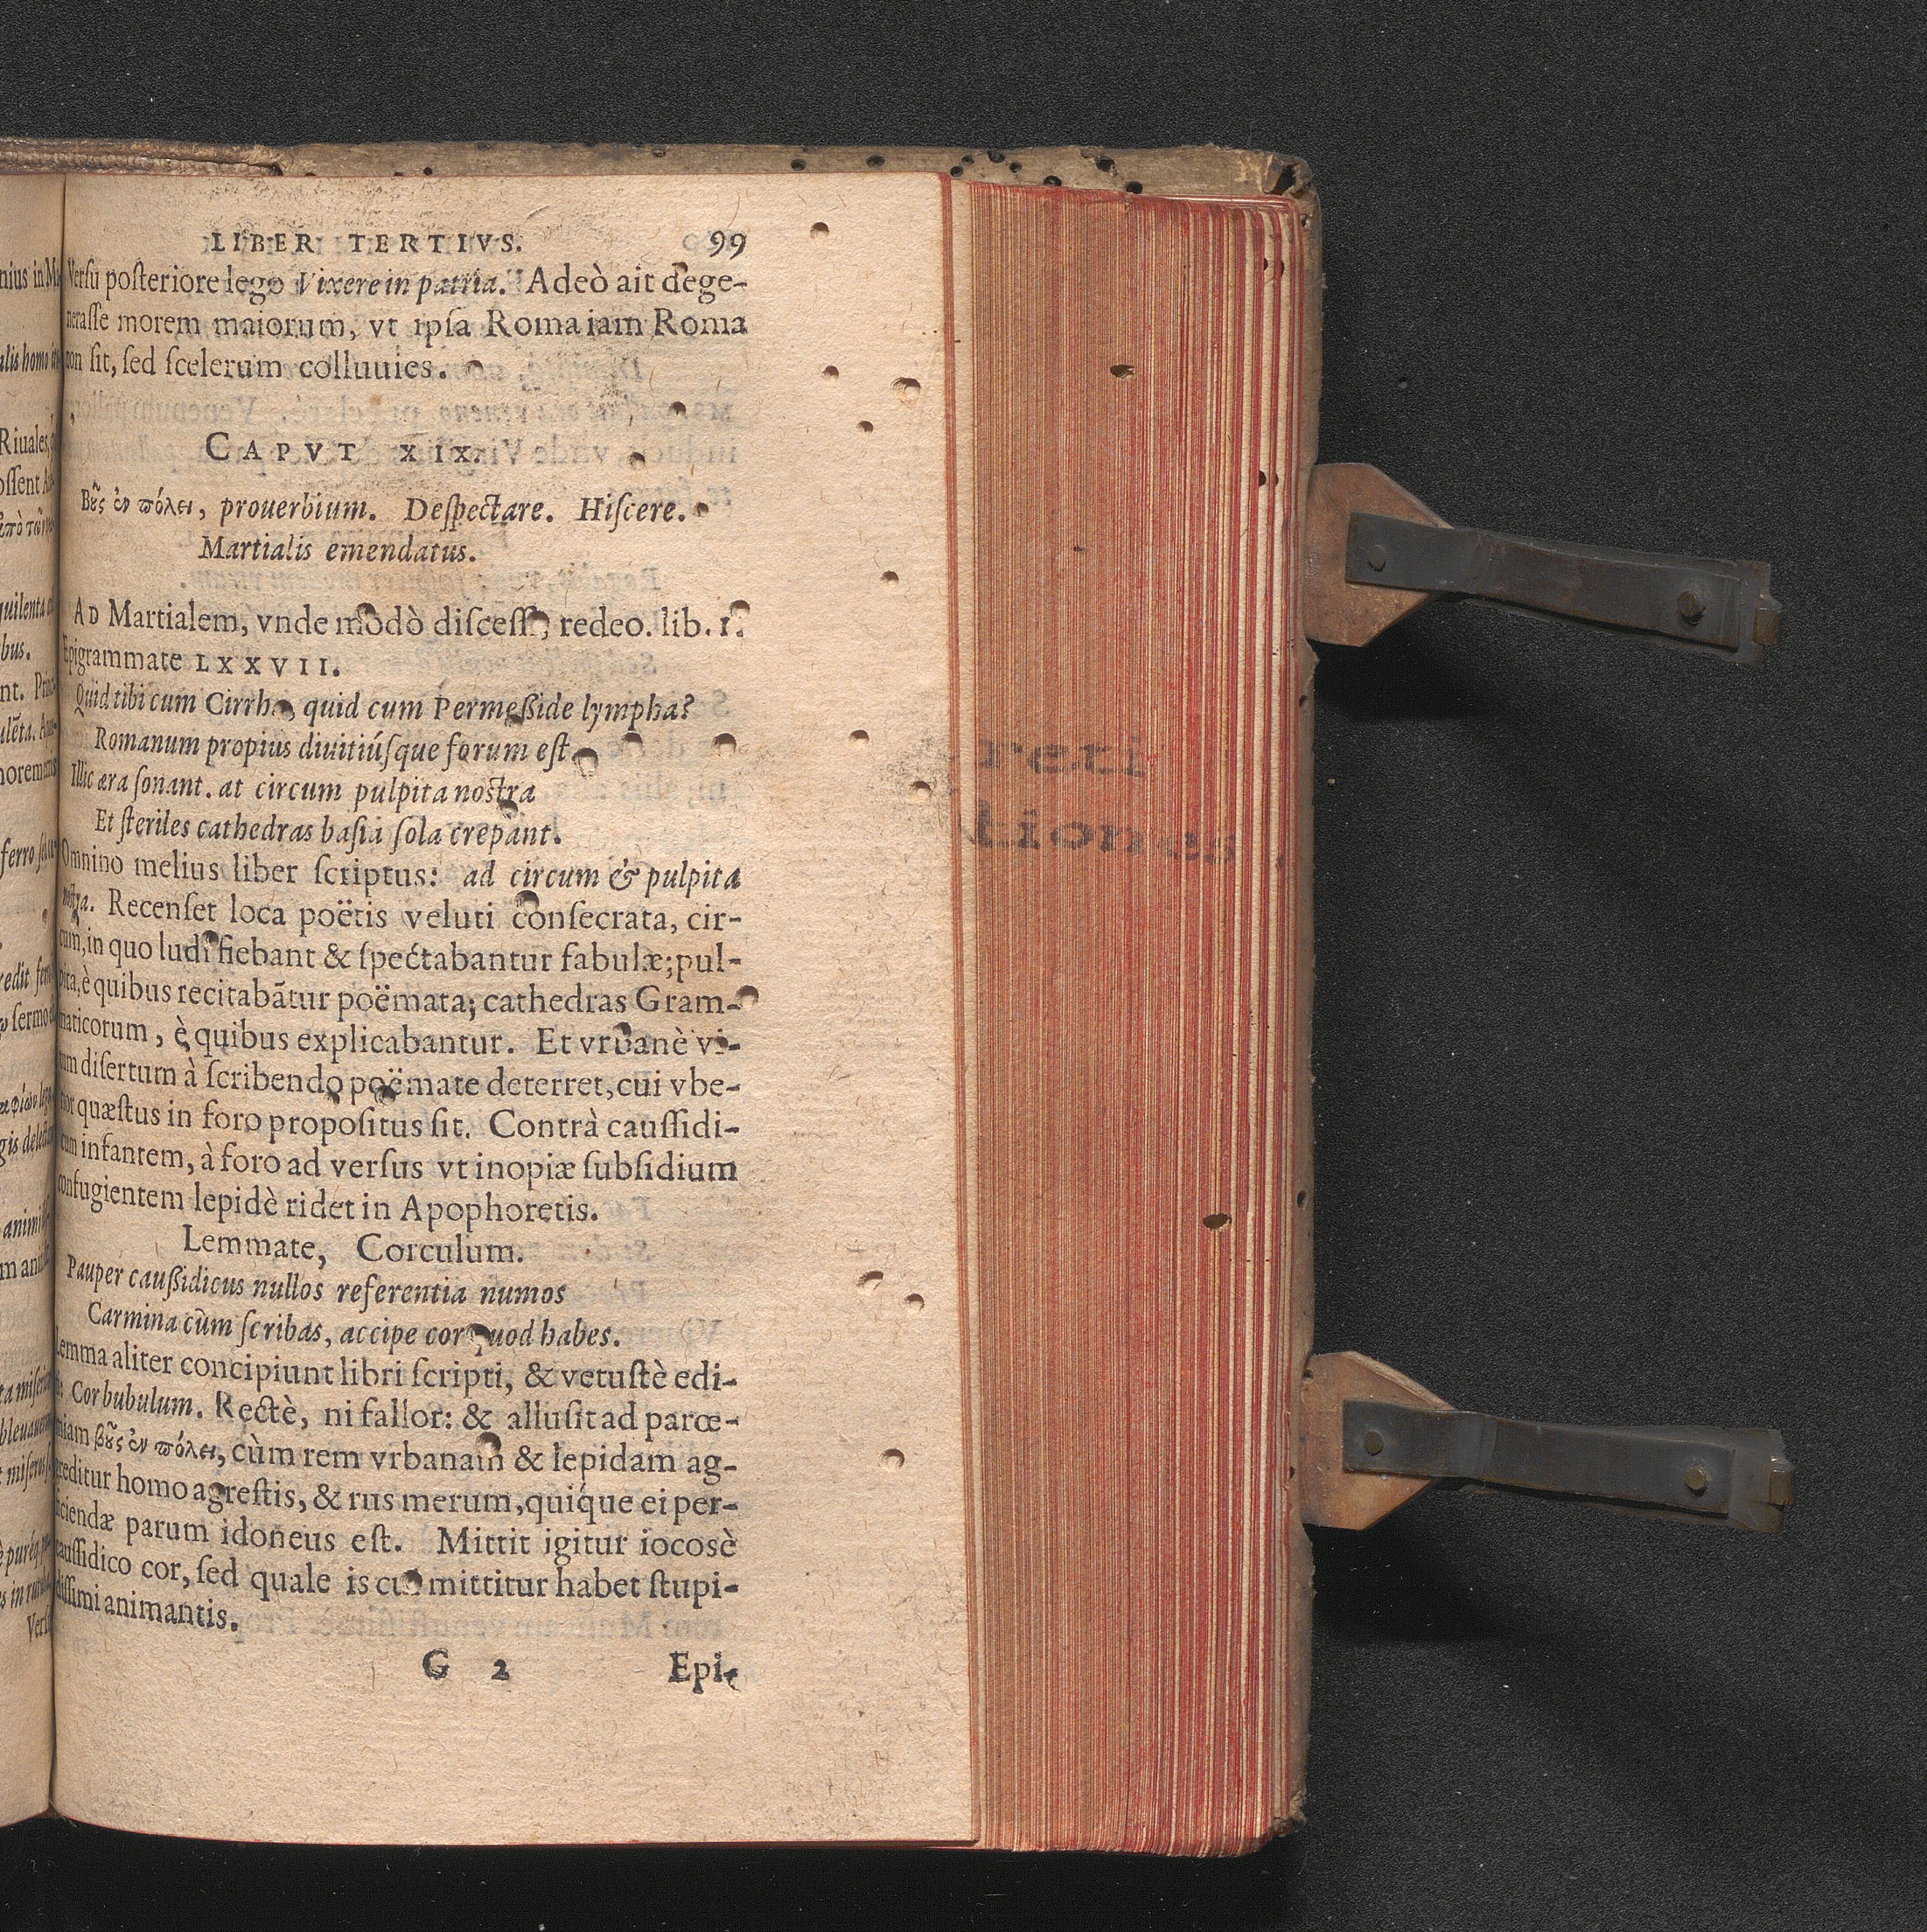 LIBER TERTIVS. 99
Versu posteriore lego Vixere in patria. Adeò ait dege-
nerasse morem maiorum, vt ipsa Roma iam Roma
non sit, sed scelerum colluuies.
CAPVT XIX.
Βοῦς ἐν πόλει, prouerbium. Despectare. Hiscere.
Martialis emendatus.
AD Martialem, vnde modò discessi, redeo. lib. 1.
Epigrammate LXXVII.
Quid tibi cum Cirrha, quid cum Permesside lympha?
Romanum propius diuitiúsque forum est.
Illic æra sonant. at circum pulpita nostra
Et steriles cathedras basia sola crepant.
Omnino melius liber scriptus: ad circum & pulpita
nostra. Recenset loca poëtis veluti consecrata, cir-
cum, in quo ludi fiebant & spectabantur fabulæ; pul-
pita, è quibus recitabātur poëmata; cathedras Gram-
maticorum, è quibus explicabantur. Et vrbanè vi-
rum disertum à scribendo poëmate deterret, cui vbe-
rior quæstus in foro propositus sit. Contrà caussidi-
cum infantem, à foro ad versus vt inopiæ subsidium
confugientem lepidè ridet in Apophoretis.
Lemmate, Corculum.
Pauper caussidicus nullos referentia numos
Carmina cùm scribas, accipe cor quod habes.
Lemma aliter concipiunt libri scripti, & vetustè edi-
ti: Cor bubulum. Rectè, ni fallor: & allusit ad parœ-
miam βοῦς ἐν πόλει, cùm rem vrbanam & lepidam ag-
greditur homo agrestis, & rus merum, quíque ei per-
ficiendæ parum idoneus est. Mittit igitur iocosè
caussidico cor, sed quale is cui mittitur habet stupi-
dissimi animantis.
G 2 Epi-